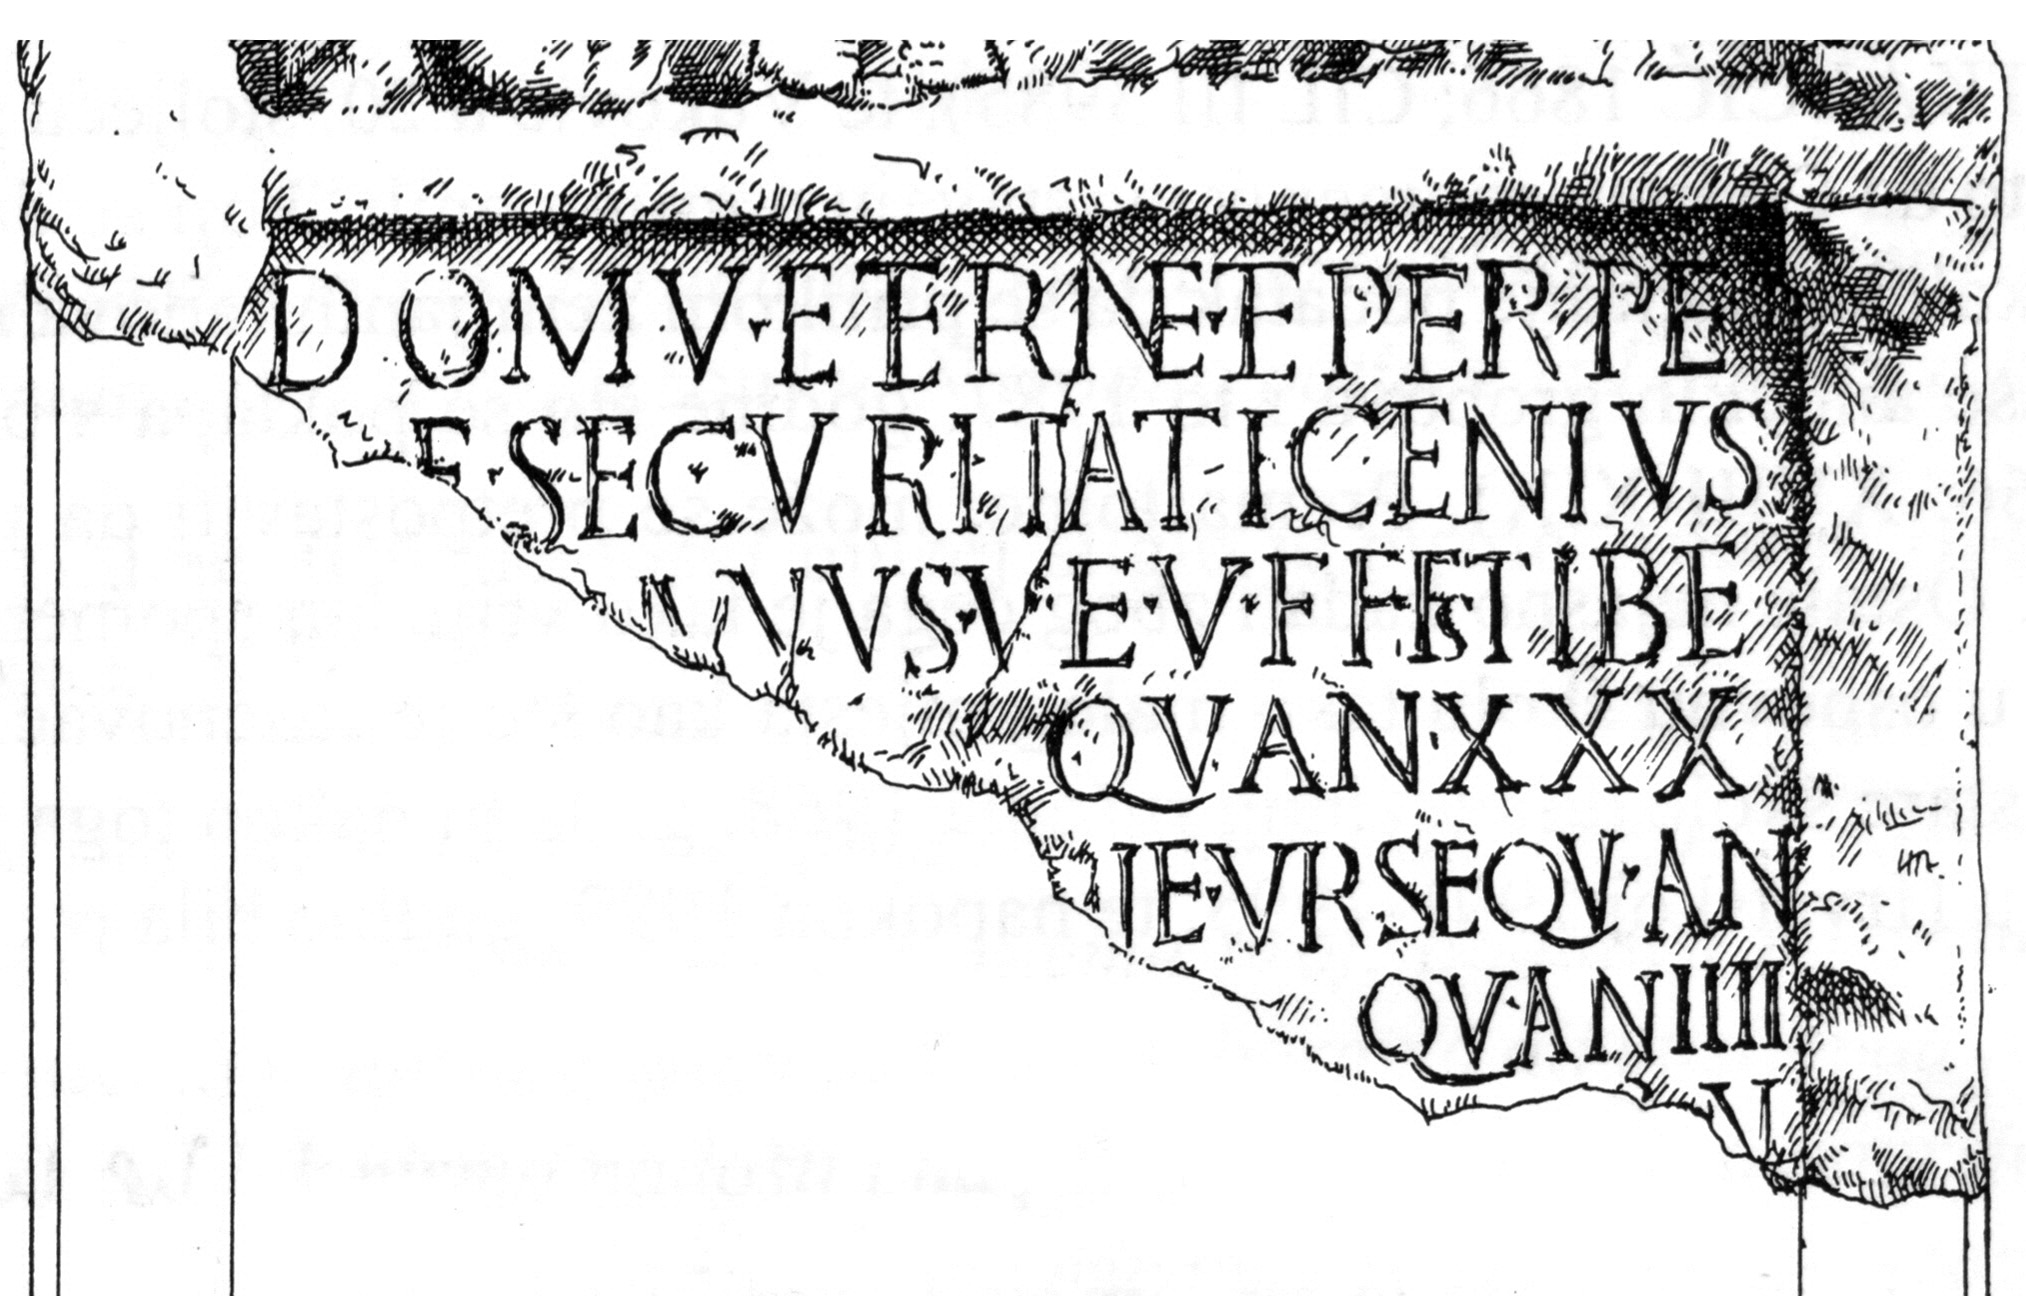 DOMV·ETERNE·ET PERPE
E·SECVRITATI CENIVS
VVVS·V E·V·F F F EST IBE
QVAN·XXX
IE·VRSE QV·AN
QV·AN IIIII
V